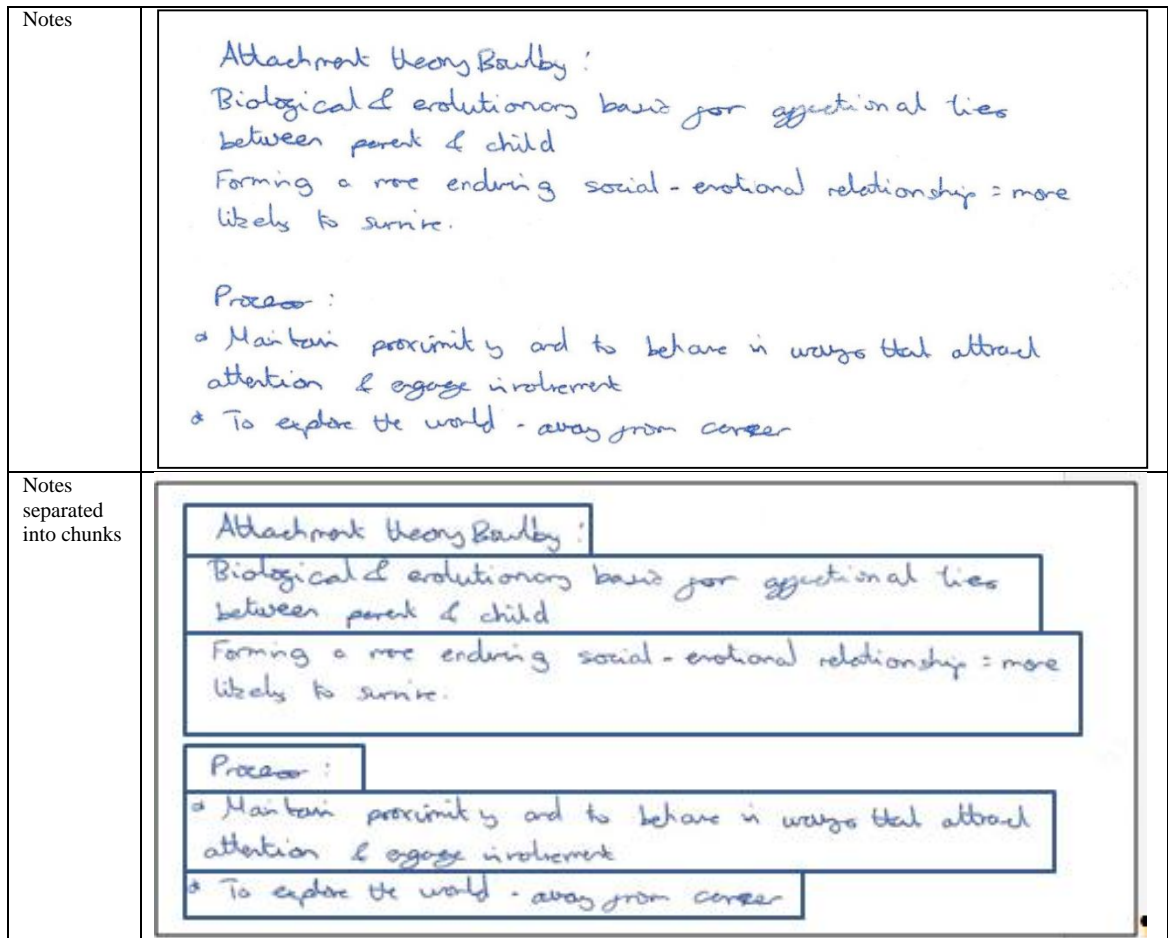 Notes
Attachment theory Boulby :
Biological & evolutionary basis for affectional ties
between parent & child
Forming a more enduring social - emotional relationship = more
likely to survive.
Process :
* Maintain proximity and to behave in ways that attract
attention & engage involvement
* To explore the world - away from career
Notes
separated
into chunks
Attachment theory Boulby :
Biological & evolutionary basis for affectional ties
between parent & child
Forming a more enduring social - emotional relationship = more
likely to survive.
Process :
* Maintain proximity and to behave in ways that attract
attention & engage involvement
* To explore the world - away from career